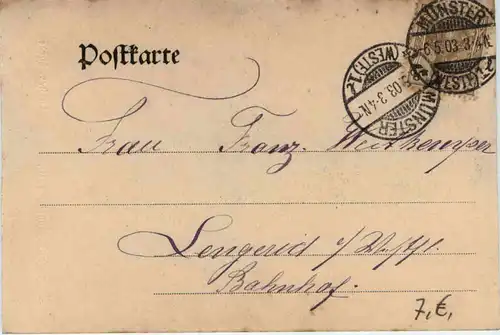 Postkarte
MÜNSTER
6.5.03.3-4N.
(WESTF.)1*
MÜNSTER
5.03.3-4N.
(WESTF.)1*
Frau Franz
Lengerich i/Westfl.
Bahnhof.
7,€,